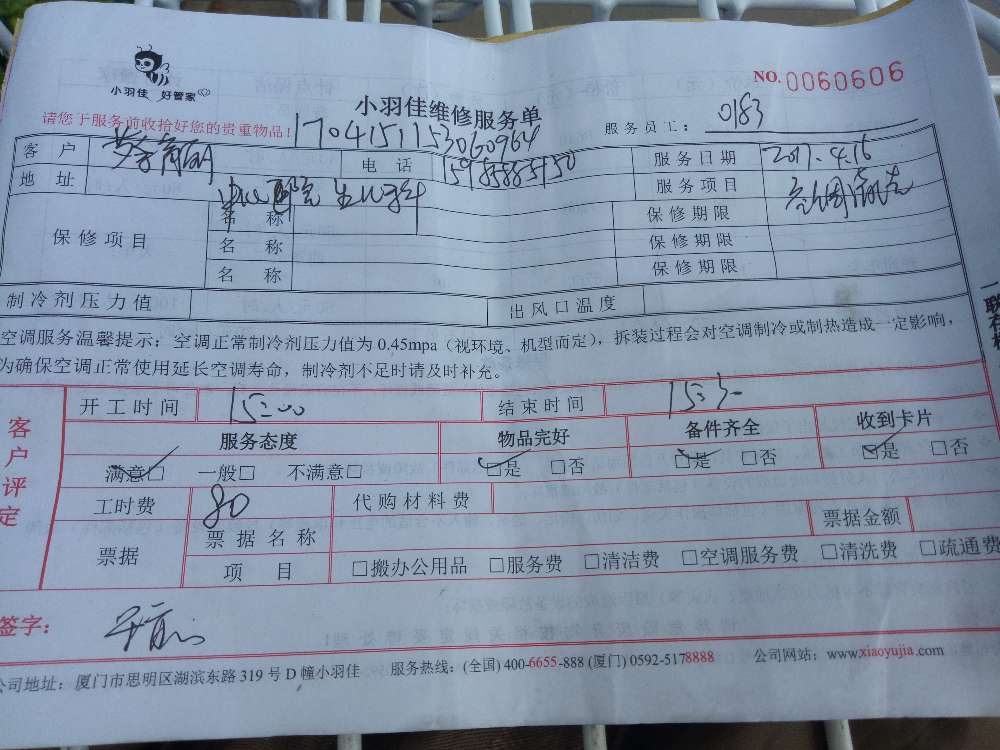 小羽佳 好管家
NO.0060606
小羽佳维修服务单
请您于服务前收拾好您的贵重物品！
170415115306G964
服务员工：0183
客户
电话 15985885150
服务日期 2017.4.16
地址
服务项目 空调清洗
保修项目 名称 保修期限
名称 保修期限
名称 保修期限
制冷剂压力值 出风口温度
空调服务温馨提示：空调正常制冷剂压力值为 0.45mpa（视环境、机型而定），拆装过程会对空调制冷或制热造成一定影响，
为确保空调正常使用延长空调寿命，制冷剂不足时请及时补充。
客户评定
开工时间 15:00 结束时间 15:30
服务态度 物品完好 备件齐全 收到卡片
满意□ 一般□ 不满意□ □是 □否 □是 □否 □是 □否
工时费 80 代购材料费
票据 票据名称 票据金额
项目 □搬办公用品 □服务费 □清洁费 □空调服务费 □清洗费 □疏通费
签字：
公司地址：厦门市思明区湖滨东路 319 号 D 幢小羽佳 服务热线：(全国) 400-6655-888 (厦门) 0592-5178888 公司网站：www.xiaoyujia.com